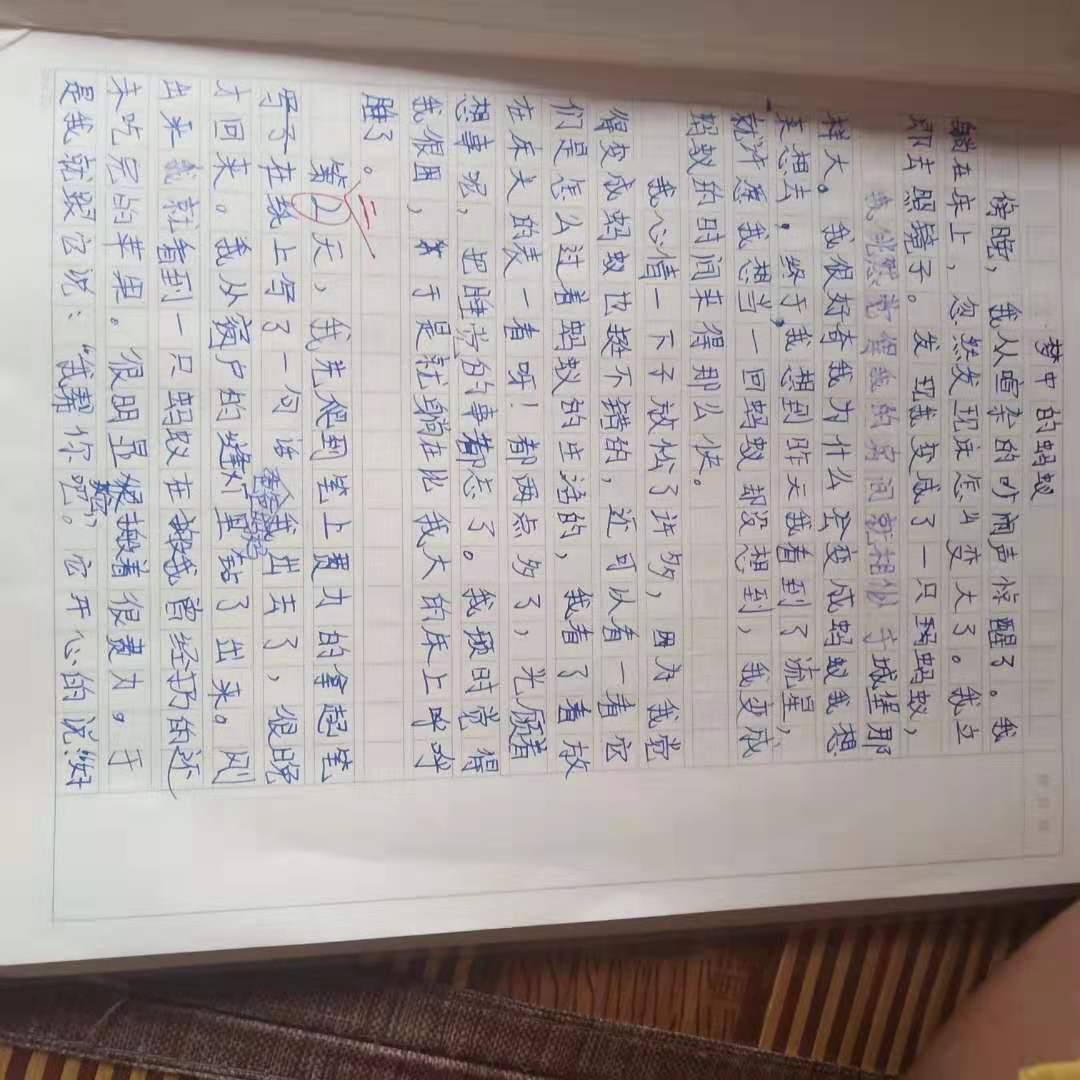 梦中的蚂蚁
傍晚，我从喧幸的吵闹声惊醒了。我
躺在床上，忽然发现床怎么变大了。我立
即去照镜子。发现我变成了一只蚂蚁，
我忽然觉得我的房间就相似于城堡那
样大。我很好奇我为什么会变成蚂蚁我想
来想去，终于我想到昨天我看到了流星，
就许愿我想当一回蚂蚁却没想到，我变成
蚂蚁的时间来得那么快。
我心情一下子放松了许多，因为我觉
得变成蚂蚁也挺不错的，还可以看一看它
们是怎么过着蚂蚁的生活的，我看了看放
在床头的表一看呀！都两点多了，光顾着
想事呢，把睡觉的事都忘了。我顿时觉得
我很困，于是就躺在比我大的床上呼呼
睡了。
第2天，我先爬到笔上费力的拿起笔
二
在纸上写了一句话 出去了，很晚
才回来。我从窗户的缝里钻了出来。刚
出来我就看到一只蚂蚁在搬我曾经扔的还
未吃完的苹果。很明显 搬着很费力。于
是我就跟它说：“我帮你吧。”它开心的说：